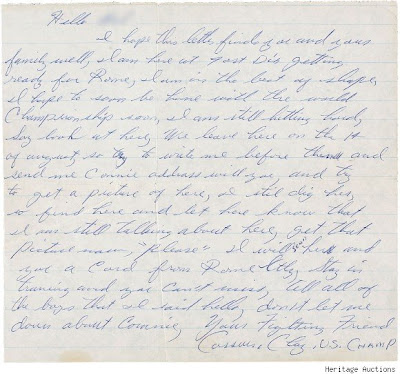 Hello
I hope this letter finds you and your
family well, I am here at Fort Dix getting
ready for Rome, I am in the best of shape,
I hope to soon be home with the world
Championship soon, I am still hitting hard,
look at here, We leave here on the
of august, so try to write me before then and
send me Connie address will you, and try
to get a picture of here, I still dig her,
so find here and let here know that
I am still talking about here, get that
picture man, "please" I will send her and
you a Card from Rome Italy, Stay in
training and you can't miss, tell all of
the boys that I said hello, don't let me
down about Connie, Your Fighting Friend
Cassius Clay, U.S. CHAMP
Heritage Auctions